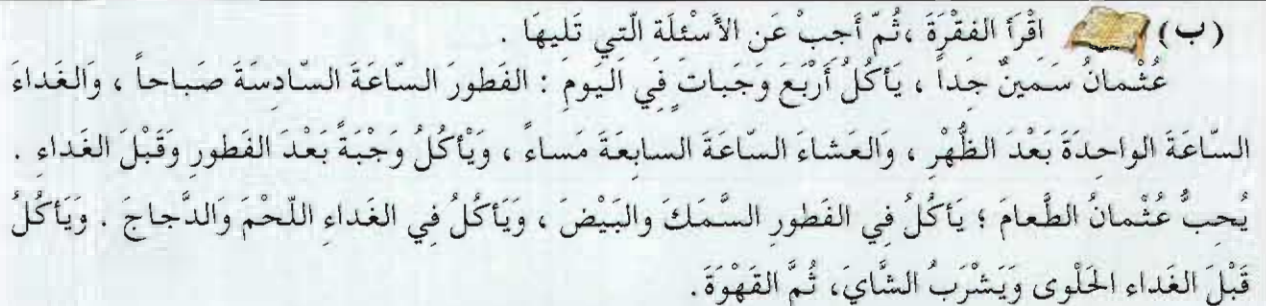 (ب) اقْرَأ الفقْرَةَ ،ثُمّ أَجِبْ عَن الأَسْئلَة الّتي تَليهَا .
عُثْمانُ سَمينٌ جَداً ، يَأكُلُ أَرْبَعَ وَجَبات في اليَومَ : الفَطورَ السّاعَةَ السّادسَةَ صَباحاً ، وَالغَداءَ
السّاعَةَ الواحدَةَ بَعْدَ الظُّهْرِ ، وَالعَشاءَ السّاعَةَ السابعَةَ مَساءً ، وَيْأكُلُ وَجْبَةً بَعْدَ الفَطور وَقَبْلَ الغَداء .
يُحبُّ عُثْمانُ الطَّعامَ ؛ يَأكُلُ في الفَطور السَّمَكَ والبَيْضَ ، وَيَأكُلُ في الغَداء اللّحْمَ وَالدَّجاجَ . وَيَأكُلُ
قَبْلَ الغَداء الحَلْوى وَيَشْرَبُ الشَّايَ، ثُمَّ القَهْوَةَ .